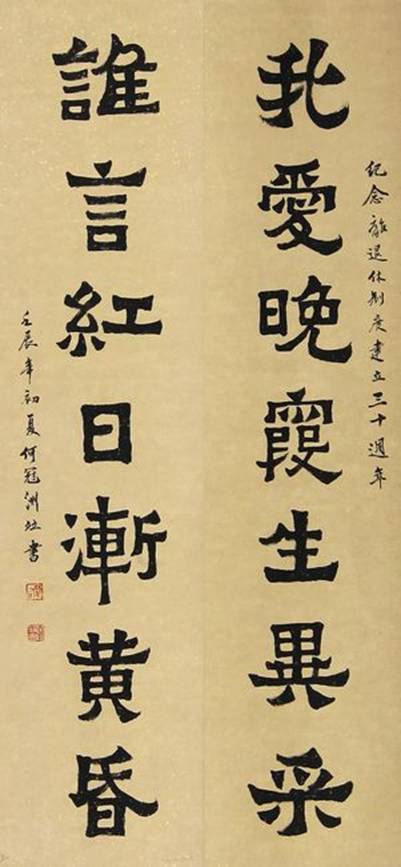 紀念離退休制度建立三十週年
我愛晚霞生異采
誰言紅日漸黄昏
壬辰年初夏何冠洲竝書